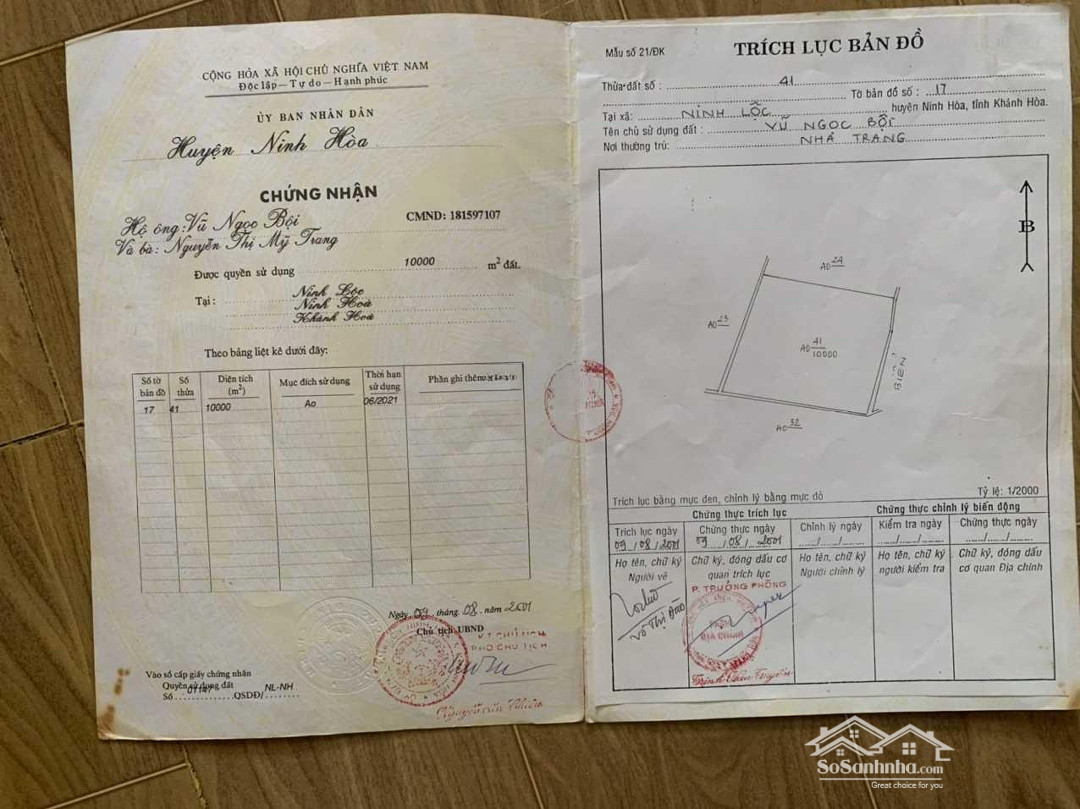 CỘNG HÒA XÃ HỘI CHỦ NGHĨA VIỆT NAM
Độc lập - Tự do - Hạnh phúc
ỦY BAN NHÂN DÂN
Huyện Ninh Hòa
CHỨNG NHẬN
Hộ ông: Vũ Ngọc Bội CMND: 181597107
Và bà: Nguyễn Thị Mỹ Trang
Được quyền sử dụng 10000 m² đất.
Tại: Ninh Lộc
Ninh Hoà
Khánh Hoà
Theo bảng liệt kê dưới đây:
Số tờ bản đồ
Số thửa
Diện tích (m²)
Mục đích sử dụng
Thời hạn sử dụng
Phần ghi thêm
17 41 10000 Ao 06/2021
Ngày 09 tháng 08 năm 2001
Chủ tịch UBND
K.T CHỦ TỊCH
PHÓ CHỦ TỊCH
Vào sổ cấp giấy chứng nhận
Quyền sử dụng đất
Số 01147 QSDĐ/ NL-NH
Mẫu số 21/ĐK
TRÍCH LỤC BẢN ĐỒ
Thửa đất số : 41
Tờ bản đồ số : 17
Tại xã: NINH LỘC huyện Ninh Hòa, tỉnh Khánh Hòa.
Tên chủ sử dụng đất : VŨ NGỌC BỘI
Nơi thường trú: NHA TRANG
B
AO 24
AO 23
AO 41
10000
BIỂN
AO 32
Trích lục bằng mực đen, chỉnh lý bằng mực đỏ
Tỷ lệ: 1/2000
Chứng thực trích lục
Chứng thực chỉnh lý biến động
Trích lục ngày
09/08/2001
Chứng thực ngày
09/08/2001
Chỉnh lý ngày
Kiểm tra ngày
Chứng thực ngày
Họ tên, chữ ký
Người vẽ
Chữ ký, đóng dấu cơ
quan trích lục
Họ tên, chữ ký
Người chỉnh lý
Họ tên, chữ ký
người kiểm tra
Chữ ký, đóng dấu
cơ quan Địa chính
P. TRƯỞNG PHÒNG
Võ Thị Đào
SoSanhnha.com
Great choice for you